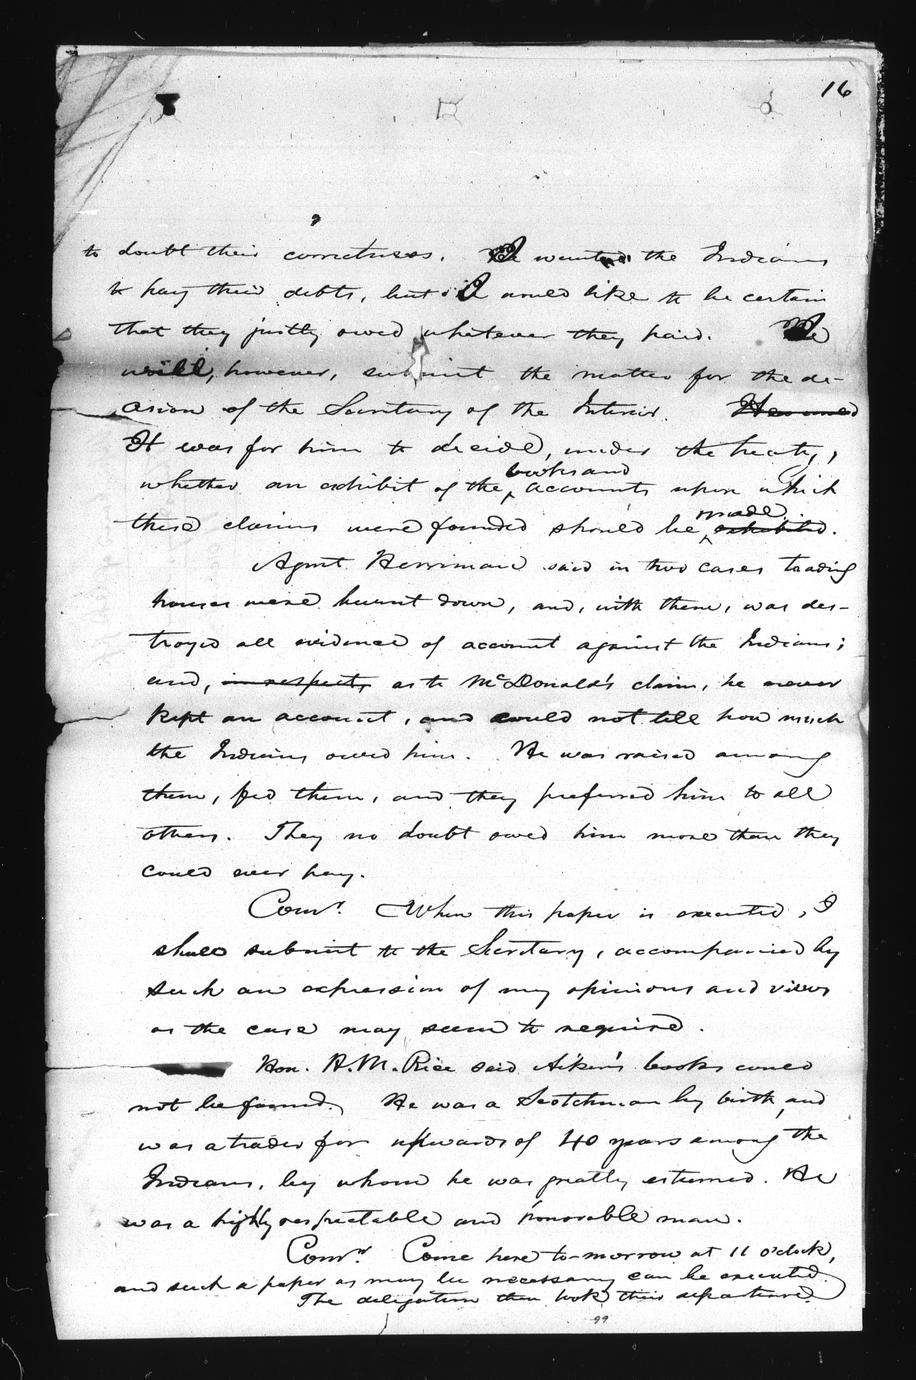 16
to doubt their correctness. I wanted the Indians
to pay their debts, but I would like to be certain
that they justly owed whatever they paid. I
will, however, submit the matter for the de-
cision of the Secretary of the Interior.
It was for him to decide, under the treaty,
whether an exhibit of the books and accounts upon which
these claims were founded should be made exhibited.
Agent Herriman said in two cases trading
houses were burnt down, and, with them, was des-
troyed all evidence of account against the Indians;
and, in respect, as to McDonald's claim, he never
kept an account, and could not tell how much
the Indians owed him. He was raised among
them, fed them, and they preferred him to all
others. They no doubt owed him more than they
could ever pay.
Comr. When this paper is executed, I
shall submit to the Secretary, accompanied by
such an expression of my opinions and views
as the case may seem to require.
Hon. H. M. Rice said Aiken's books could
not be found. He was a Scotchman by birth, and
was a trader for upwards of 40 years among the
Indians, by whom he was greatly esteemed. He
was a highly respectable and honorable man.
Comr. Come here to-morrow at 11 o'clock,
and such a paper as may be necessary can be executed.
The delegation then took their departure.
99